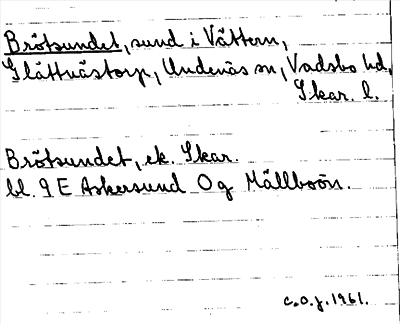 Brötsundet, sund i Vättern,
Slättnästorp, Undenäs sn, Vadsbo hd,
Skar. l.
Brötsundet, ek. Skar.
bl. 9 E Askersund 0 g Mällboön.
c.o.j. 1961.